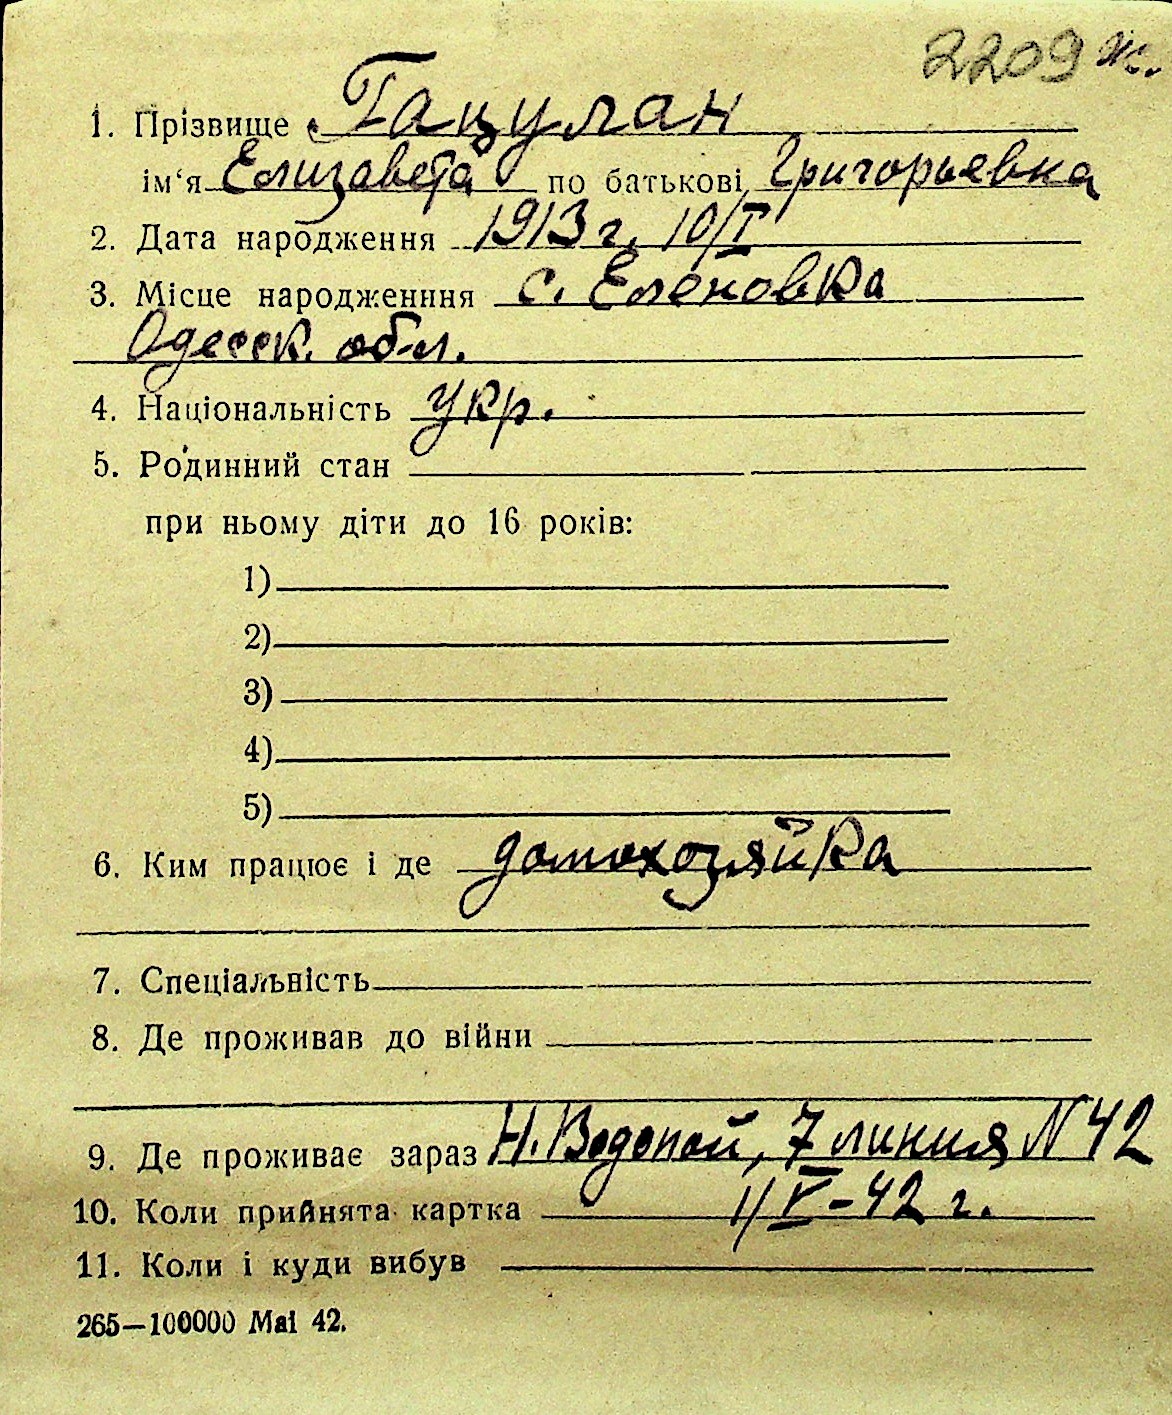 2209 ж.
1. Прізвище Гацулан
ім‘я Елизавета по батькові Григорьевна
2. Дата народження 1913 г. 10/I
3. Місце народженння с. Еленовка
Одесск. обл.
4. Національність укр.
5. Родинний стан
при ньому діти до 16 років:
1)
2)
3)
4)
5)
6. Ким працює і де домохозяйка
7. Спеціальність
8. Де проживав до війни
9. Де проживає зараз Н. Водопой, 7 линия N 42
10. Коли прийнята картка 1/V-42 г.
11. Коли і куди вибув
265—100000 Mai 42.